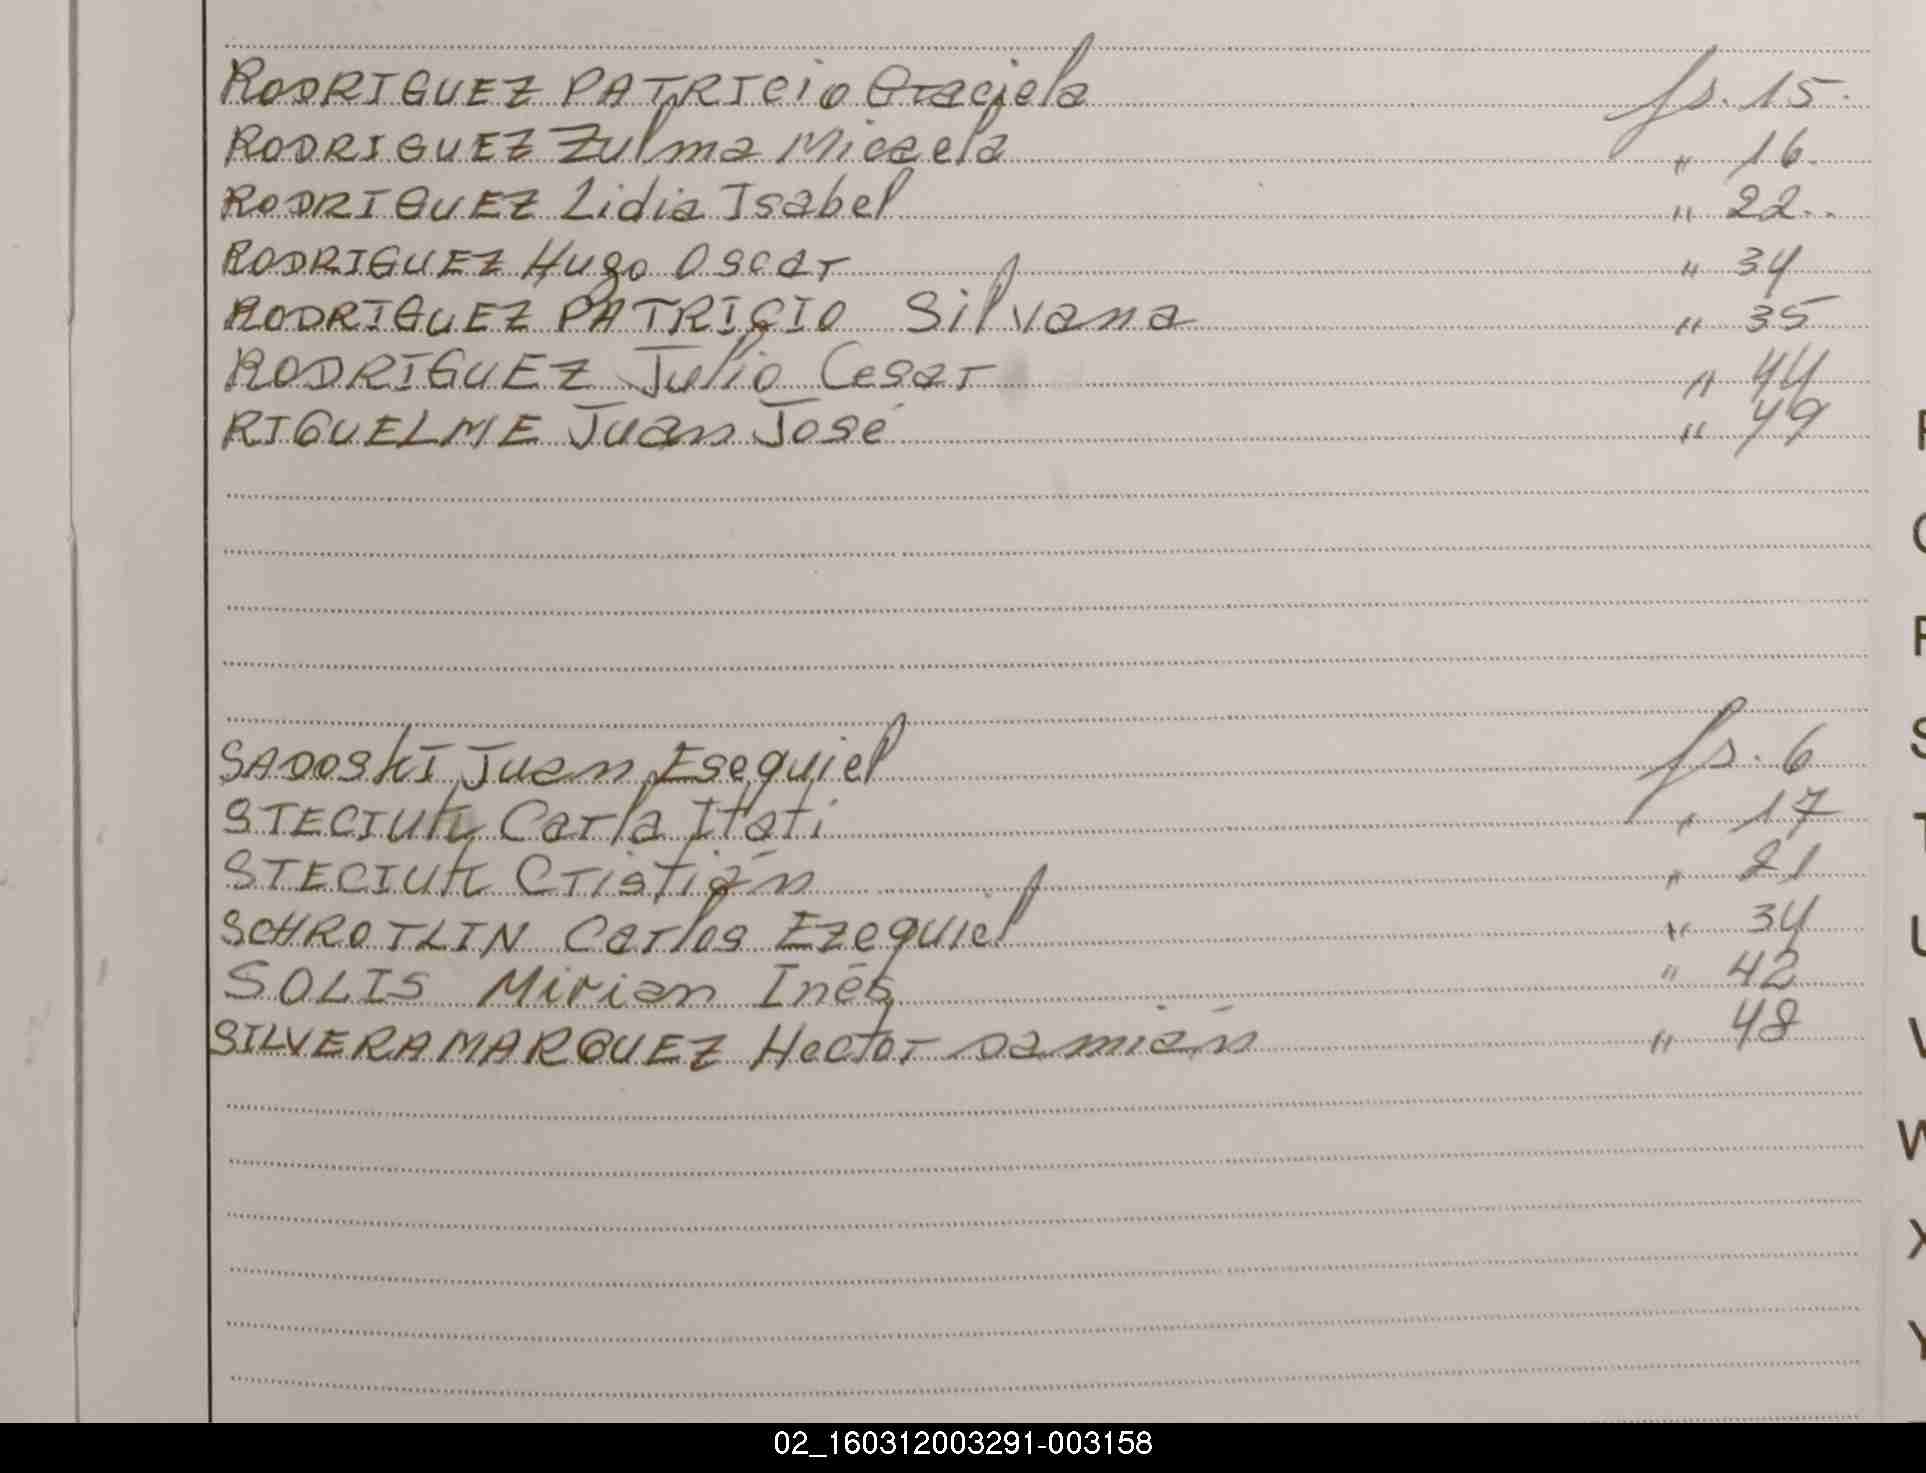 RODRIGUEZ PATRICIO Graciela fs. 15.
RODRIGUEZ Zulma Micaela " 16.
RODRIGUEZ Lidia Isabel " 22..
RODRIGUEZ Hugo Oscar " 34
RODRIGUEZ PATRICIO Silvana " 35
RODRIGUEZ Julio Cesar " 44
RIGUELME Juan José " 49
SADOSKI Juan Esequiel fs. 6
STECIUK Carla Itatí " 17
STECIUK Cristián " 21
SCHROTLIN Carlos Ezequiel " 34
SOLIS Mirian Inés " 42
SILVERA MARQUEZ Hector Damián " 48
S
T
U
V
W
X
Y
02_160312003291-003158